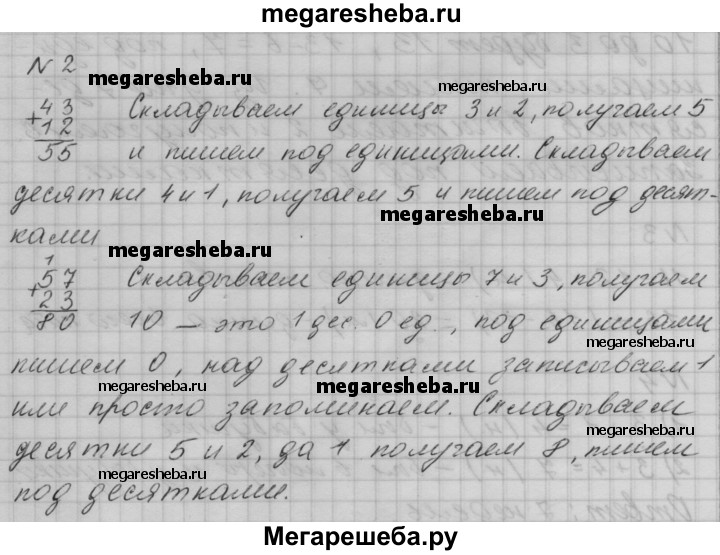 megaresheba.ru
N 2
megaresheba.ru megaresheba.ru
43 Складываем единицы 3 и 2, получаем 5
+12
55 и пишем под единицами. Складываем
десятки 4 и 1, получаем 5 и пишем под десят-
megaresheba.ru
ками
megaresheba.ru
1
57 Складываем единицы 7 и 3, получаем
+23
80 10 – это 1 дес. 0 ед., под единицами
megaresheba.ru
пишем 0, над десятками записываем 1
megaresheba.ru megaresheba.ru
или просто запоминаем. Складываем
megaresheba.ru
десятки 5 и 2, да 1 получаем 8, пишем
megaresheba.ru
под десятками.
Мегарешеба.ру